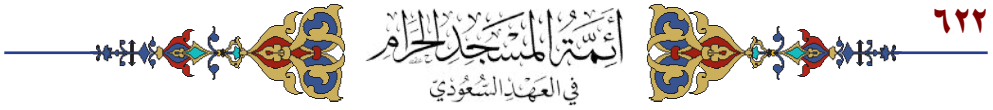 ٦٢٢
أئمة المسجد الحرام
في العهد السعودي